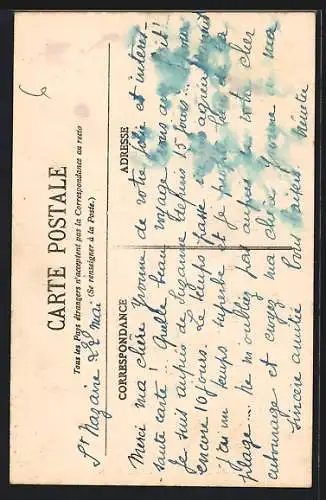 CARTE POSTALE
Tous les Pays étrangers n'acceptent pas la Correspondance au recto
(Se renseigner à la Poste.)
CORRESPONDANCE
ADRESSE
St Nazaire 22 Mai
Merci ma chère Yvonne de votre jolie et intéres-
sante carte! Quelle beau voyage vous avez fait!
Je suis auprès de Suzanne depuis 15 jours
encore 10 jours. Le temps passe agréablement
j'ai un temps superbe et je profite bien de la
plage... ne m'oubliez pas auprès de votre cher
entourage et croyez ma chère Yvonne à ma
sincère amitié Bons baisers